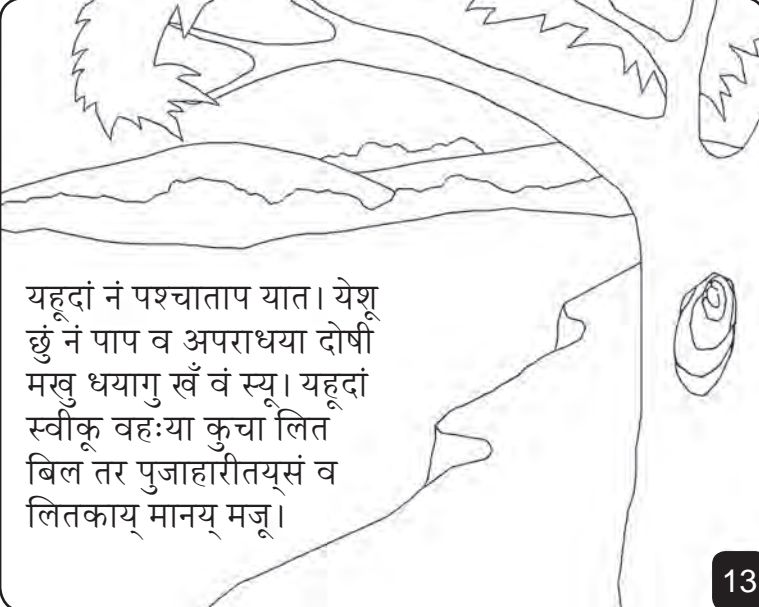 यहूदां नं पश्चाताप यात। येशू
छुं नं पाप व अपराधया दोषी
मखु धयागु खँ वं स्यू। यहूदां
स्वीकू वहःया कुचा लित
बिल तर पुजाहारीतय्‌सं व
लितकाय् मानय् मजू।
13